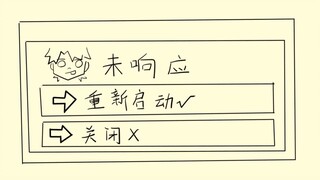 未响应
重新启动✓
关闭×